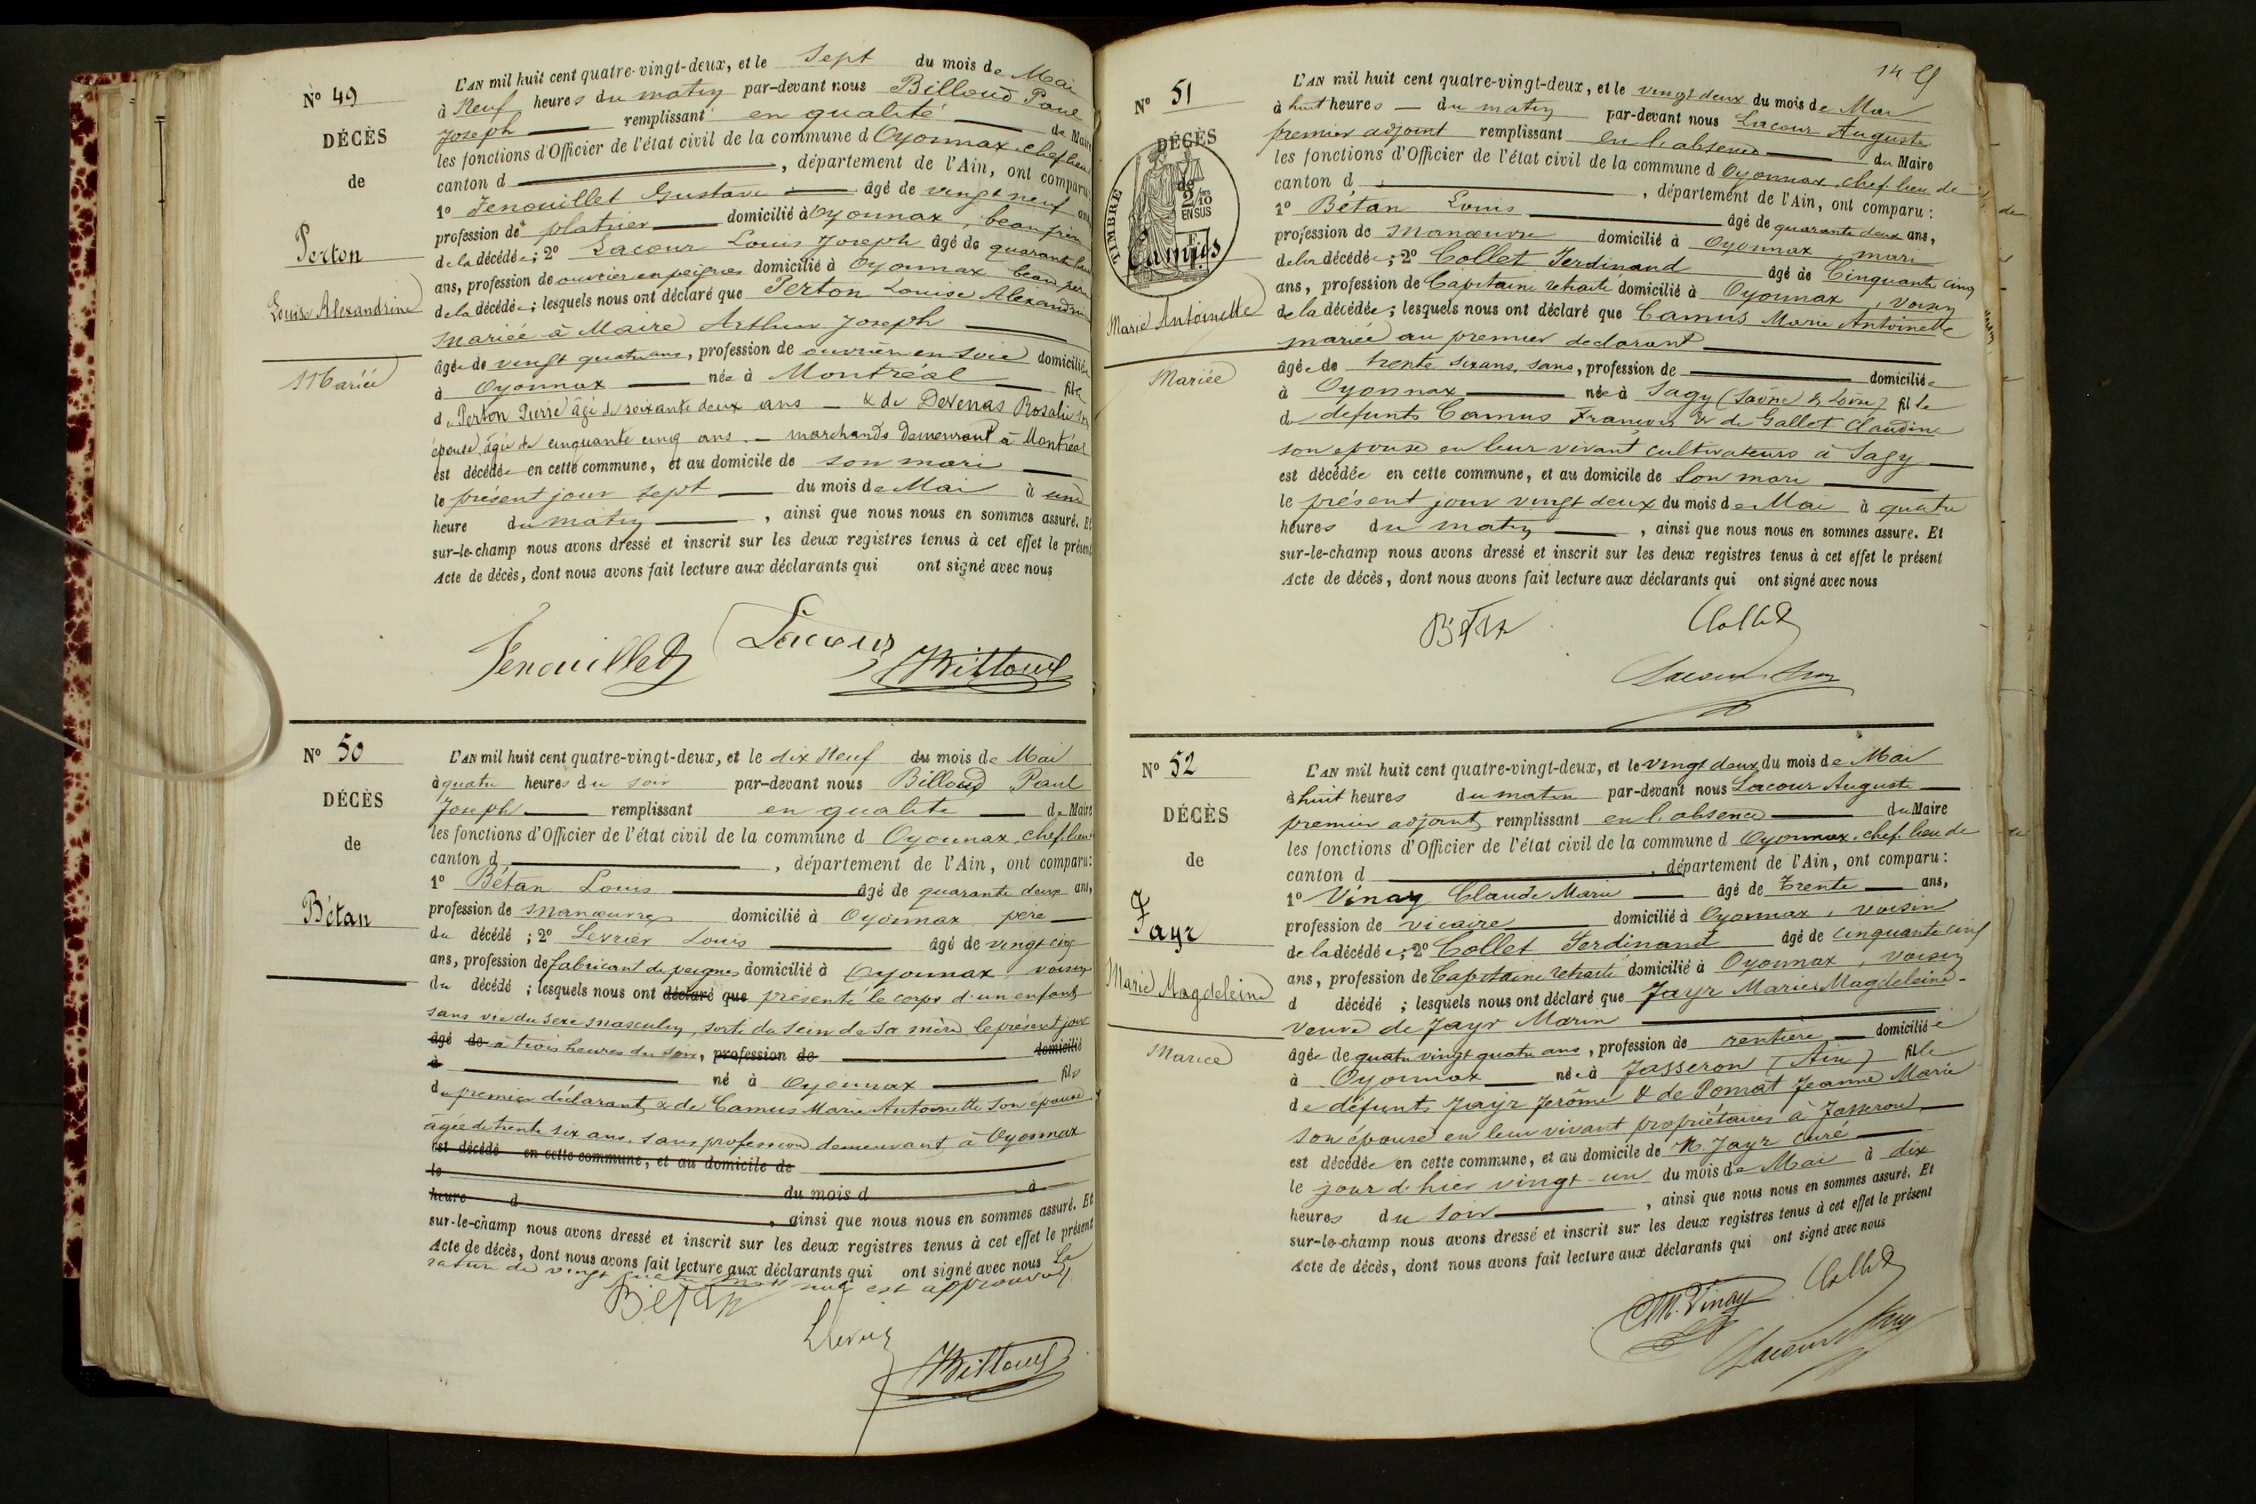 Nº 49
DÉCÈS
de
Perton
Louise Alexandrine
Mariée
L'AN mil huit cent quatre-vingt-deux, et le Sept du mois de Mai
à Neuf heures du matin par-devant nous Billoud Paul
Joseph remplissant en qualité de Maire
les fonctions d'Officier de l'état civil de la commune d Oyonnax chef lieu
canton d , département de l'Ain, ont comparu:
1º Fenouillet Gustave âgé de vingt neuf ans
profession de platrier domicilié à Oyonnax, beau frère
de la décédée; 2º Lacour Louis Joseph âgé de quarante
ans, profession de ouvrier en peignes domicilié à Oyonnax beau père
de la décédée; lesquels nous ont déclaré que Perton Louise Alexandrine
mariée à Maire Arthur Joseph
âgée de vingt quatre ans, profession de ouvrière en soie domiciliée
à Oyonnax née à Montréal fille
de Perton Pierre âgé de soixante deux ans & de Devenas Rosalie son
épouse, âgée de cinquante cinq ans. marchands demeurant à Montréal
est décédée en cette commune, et au domicile de son mari
le présent jour sept du mois de Mai à une
heure du matin , ainsi que nous nous en sommes assuré. Et
sur-le-champ nous avons dressé et inscrit sur les deux registres tenus à cet effet le présent
Acte de décès, dont nous avons fait lecture aux déclarants qui ont signé avec nous
Fenouillet Lacour Billoud
Nº 50
DÉCÈS
de
Bétan
L'AN mil huit cent quatre-vingt-deux, et le dix Neuf du mois de Mai
à quatre heures du soir par-devant nous Billoud Paul
Joseph remplissant en qualité de Maire
les fonctions d'Officier de l'état civil de la commune d Oyonnax, chef lieu
canton d , département de l'Ain, ont comparu:
1º Bétan Louis âgé de quarante deux ans,
profession de manœuvre domicilié à Oyonnax père
du décédé; 2º Levrier Louis âgé de vingt cinq
ans, profession de fabricant de peignes domicilié à Oyonnax, voisin
du décédé; lesquels nous ont déclaré que présenté le corps d'un enfant
sans vie du sexe masculin, sorti du sein de sa mère le présent jour
âgé de à trois heures du soir, profession de domicilié
à né à Oyonnax fils
du premier déclarant & de Camus Marie Antoinette son épouse
âgée de trente six ans, sans profession demeurant à Oyonnax
est décédé en cette commune, et au domicile de
le du mois d à
heure d , ainsi que nous nous en sommes assuré. Et
sur-le-champ nous avons dressé et inscrit sur les deux registres tenus à cet effet le présent
Acte de décès, dont nous avons fait lecture aux déclarants qui ont signé avec nous La
rature de vingt quatre mots nuls est approuvée
Bétan
Levrier
Billoud
14
Nº 51
DÉCÈS
de
TIMBRE
2/10
EN SUS
Camus
Marie Antoinette
Mariée
L'AN mil huit cent quatre-vingt-deux, et le vingt deux du mois de Mai
à huit heures du matin par-devant nous Lacour Auguste
premier adjoint remplissant en l'absence du Maire
les fonctions d'Officier de l'état civil de la commune d Oyonnax, chef lieu de
canton d , département de l'Ain, ont comparu:
1º Bétan Louis âgé de quarante deux ans,
profession de manœuvre domicilié à Oyonnax, mari
de la décédée; 2º Collet Ferdinand âgé de Cinquante cinq
ans, profession de Capitaine retraité domicilié à Oyonnax, voisin
de la décédée; lesquels nous ont déclaré que Camus Marie Antoinette
mariée au premier déclarant
âgée de trente six ans, sans, profession de domiciliée
à Oyonnax née à Sagy (Saône & Loire) fille
de défunts Camus François & de Gallet Claudine
son épouse en leur vivant cultivateurs à Sagy
est décédée en cette commune, et au domicile de Son mari
le présent jour vingt deux du mois de Mai à quatre
heures du matin , ainsi que nous nous en sommes assuré. Et
sur-le-champ nous avons dressé et inscrit sur les deux registres tenus à cet effet le présent
Acte de décès, dont nous avons fait lecture aux déclarants qui ont signé avec nous
Bétan Collet
Lacour
Nº 52
DÉCÈS
de
Jayr
Marie Magdeleine
Mariée
L'AN mil huit cent quatre-vingt-deux, et le vingt deux du mois de Mai
à huit heures du matin par-devant nous Lacour Auguste
premier adjoint, remplissant en l'absence du Maire
les fonctions d'Officier de l'état civil de la commune d Oyonnax, chef lieu de
canton d , département de l'Ain, ont comparu:
1º Vinay Claude Marie âgé de Trente ans,
profession de vicaire domicilié à Oyonnax, voisin
de la décédée; 2º Collet Ferdinand âgé de cinquante cinq
ans, profession de Capitaine retraité domicilié à Oyonnax, voisin
d décédé; lesquels nous ont déclaré que Jayr Marie Magdeleine
veuve de Jayr Marin
âgée de quatre vingt quatre ans, profession de rentière domiciliée
à Oyonnax née à Jasseron (Ain) fille
de défunts Jayr Jérôme & de Pomat Jeanne Marie
son épouse en leur vivant propriétaires à Jasseron,
est décédée en cette commune, et au domicile de M. Jayr curé
le jour d'hier vingt-un du mois de Mai à dix
heures du soir , ainsi que nous nous en sommes assuré. Et
sur-le-champ nous avons dressé et inscrit sur les deux registres tenus à cet effet le présent
Acte de décès, dont nous avons fait lecture aux déclarants qui ont signé avec nous
CM. Vinay Collet
Lacour